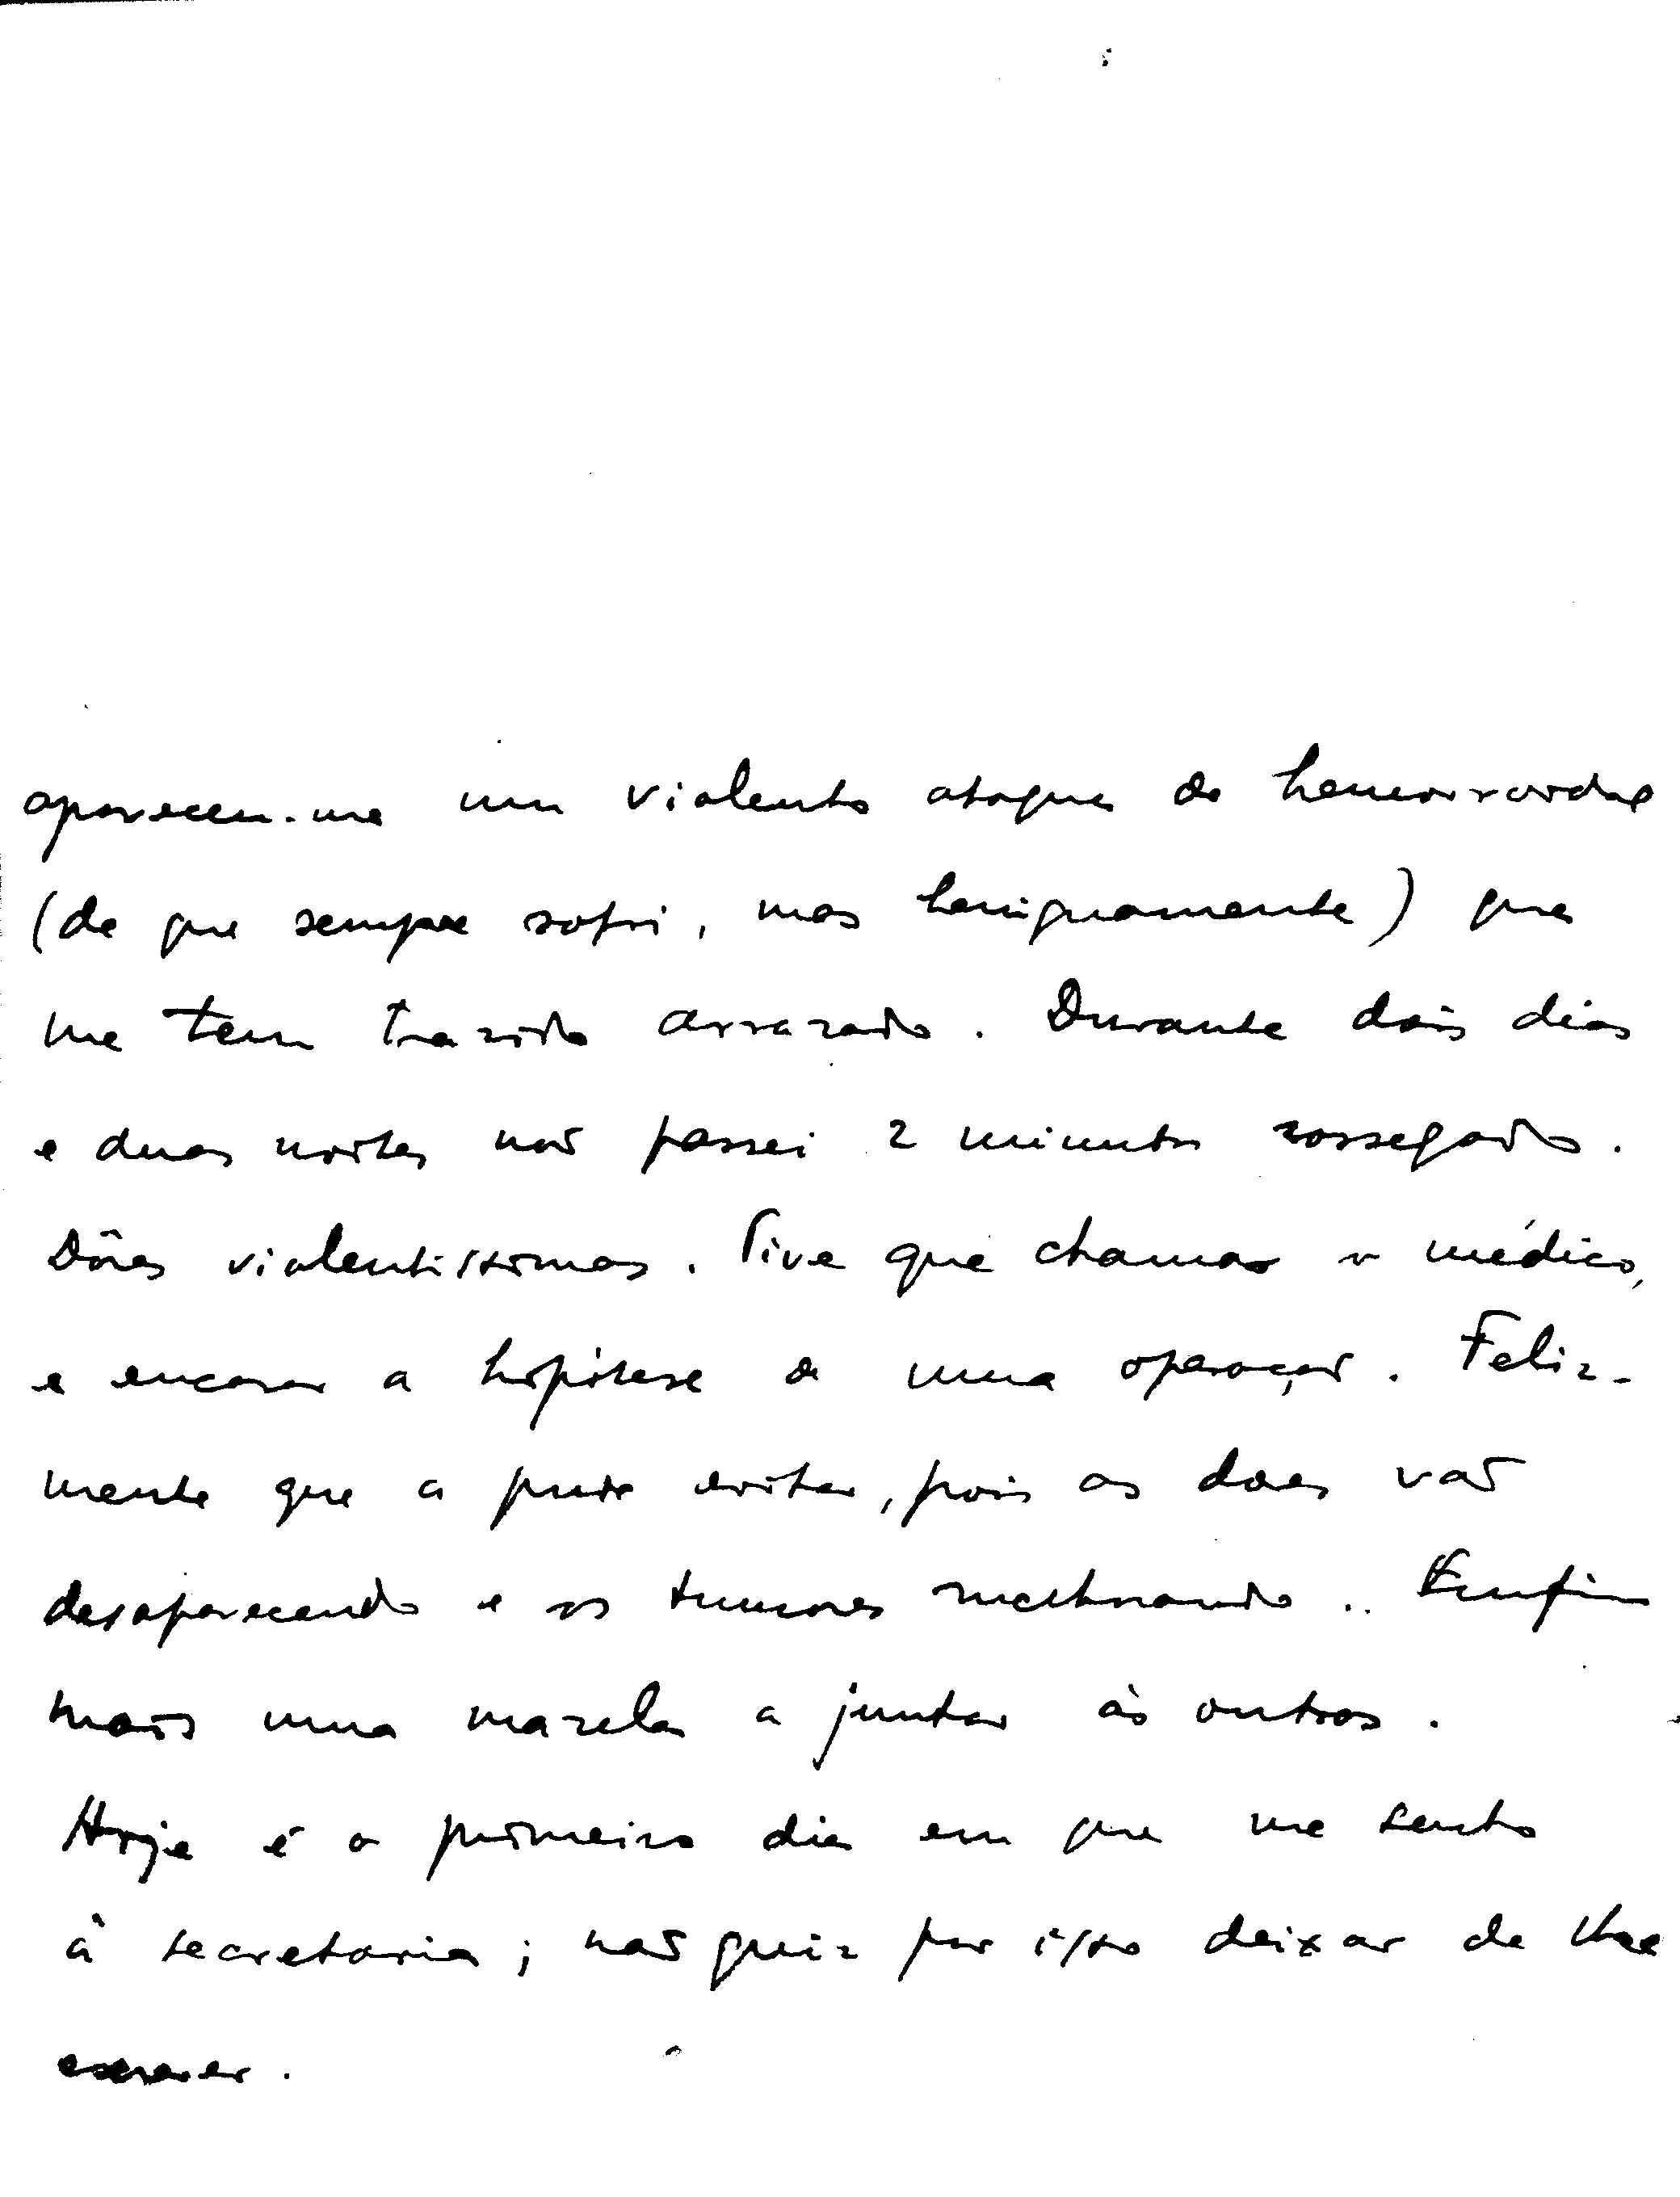 apareceu-me um violento ataque de hemorroidal
(de que sempre sofri, mas benignamente) que
me tem trazido arrazado. Durante dois dias
e duas noites não passei 2 minutos sossegado.
Dôres violentissimas. Tive que chamar o médico,
e encarar a hipótese de uma operação. Feliz-
mente que a pude evitar, pois as dores vão
desaparecendo e os tumores melhorando.. Enfim
mais uma mazela a juntar às outras.
Hoje é o primeiro dia em que me sento
à secretaria; não quiz por isso deixar de lhe
escrever.